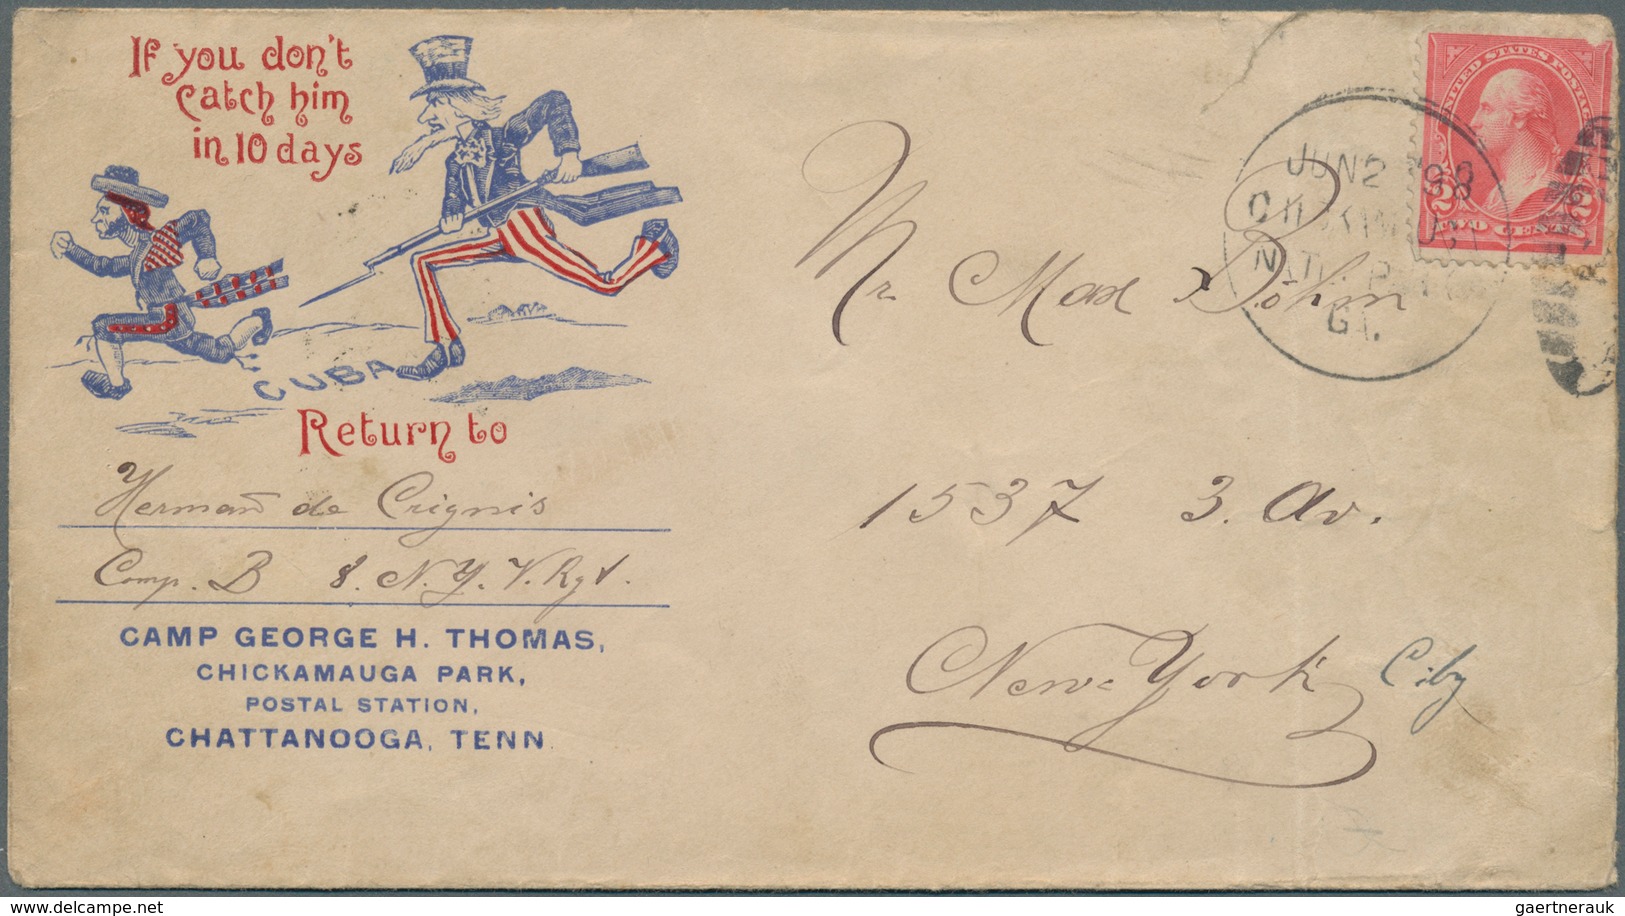 If you don't
catch him
in 10 days
CUBA
Return to
Herman̄ de Crignis
Comp. B 8. N.Y. V. Rgt.
CAMP GEORGE H. THOMAS,
CHICKAMAUGA PARK,
POSTAL STATION,
CHATTANOOGA, TENN.
UNITED STATES POSTAGE
2 2
TWO CENTS
JUN 2 98
GA.
Mr Max Böhm
1537 3. Av.
New-York City
gaertnerauk